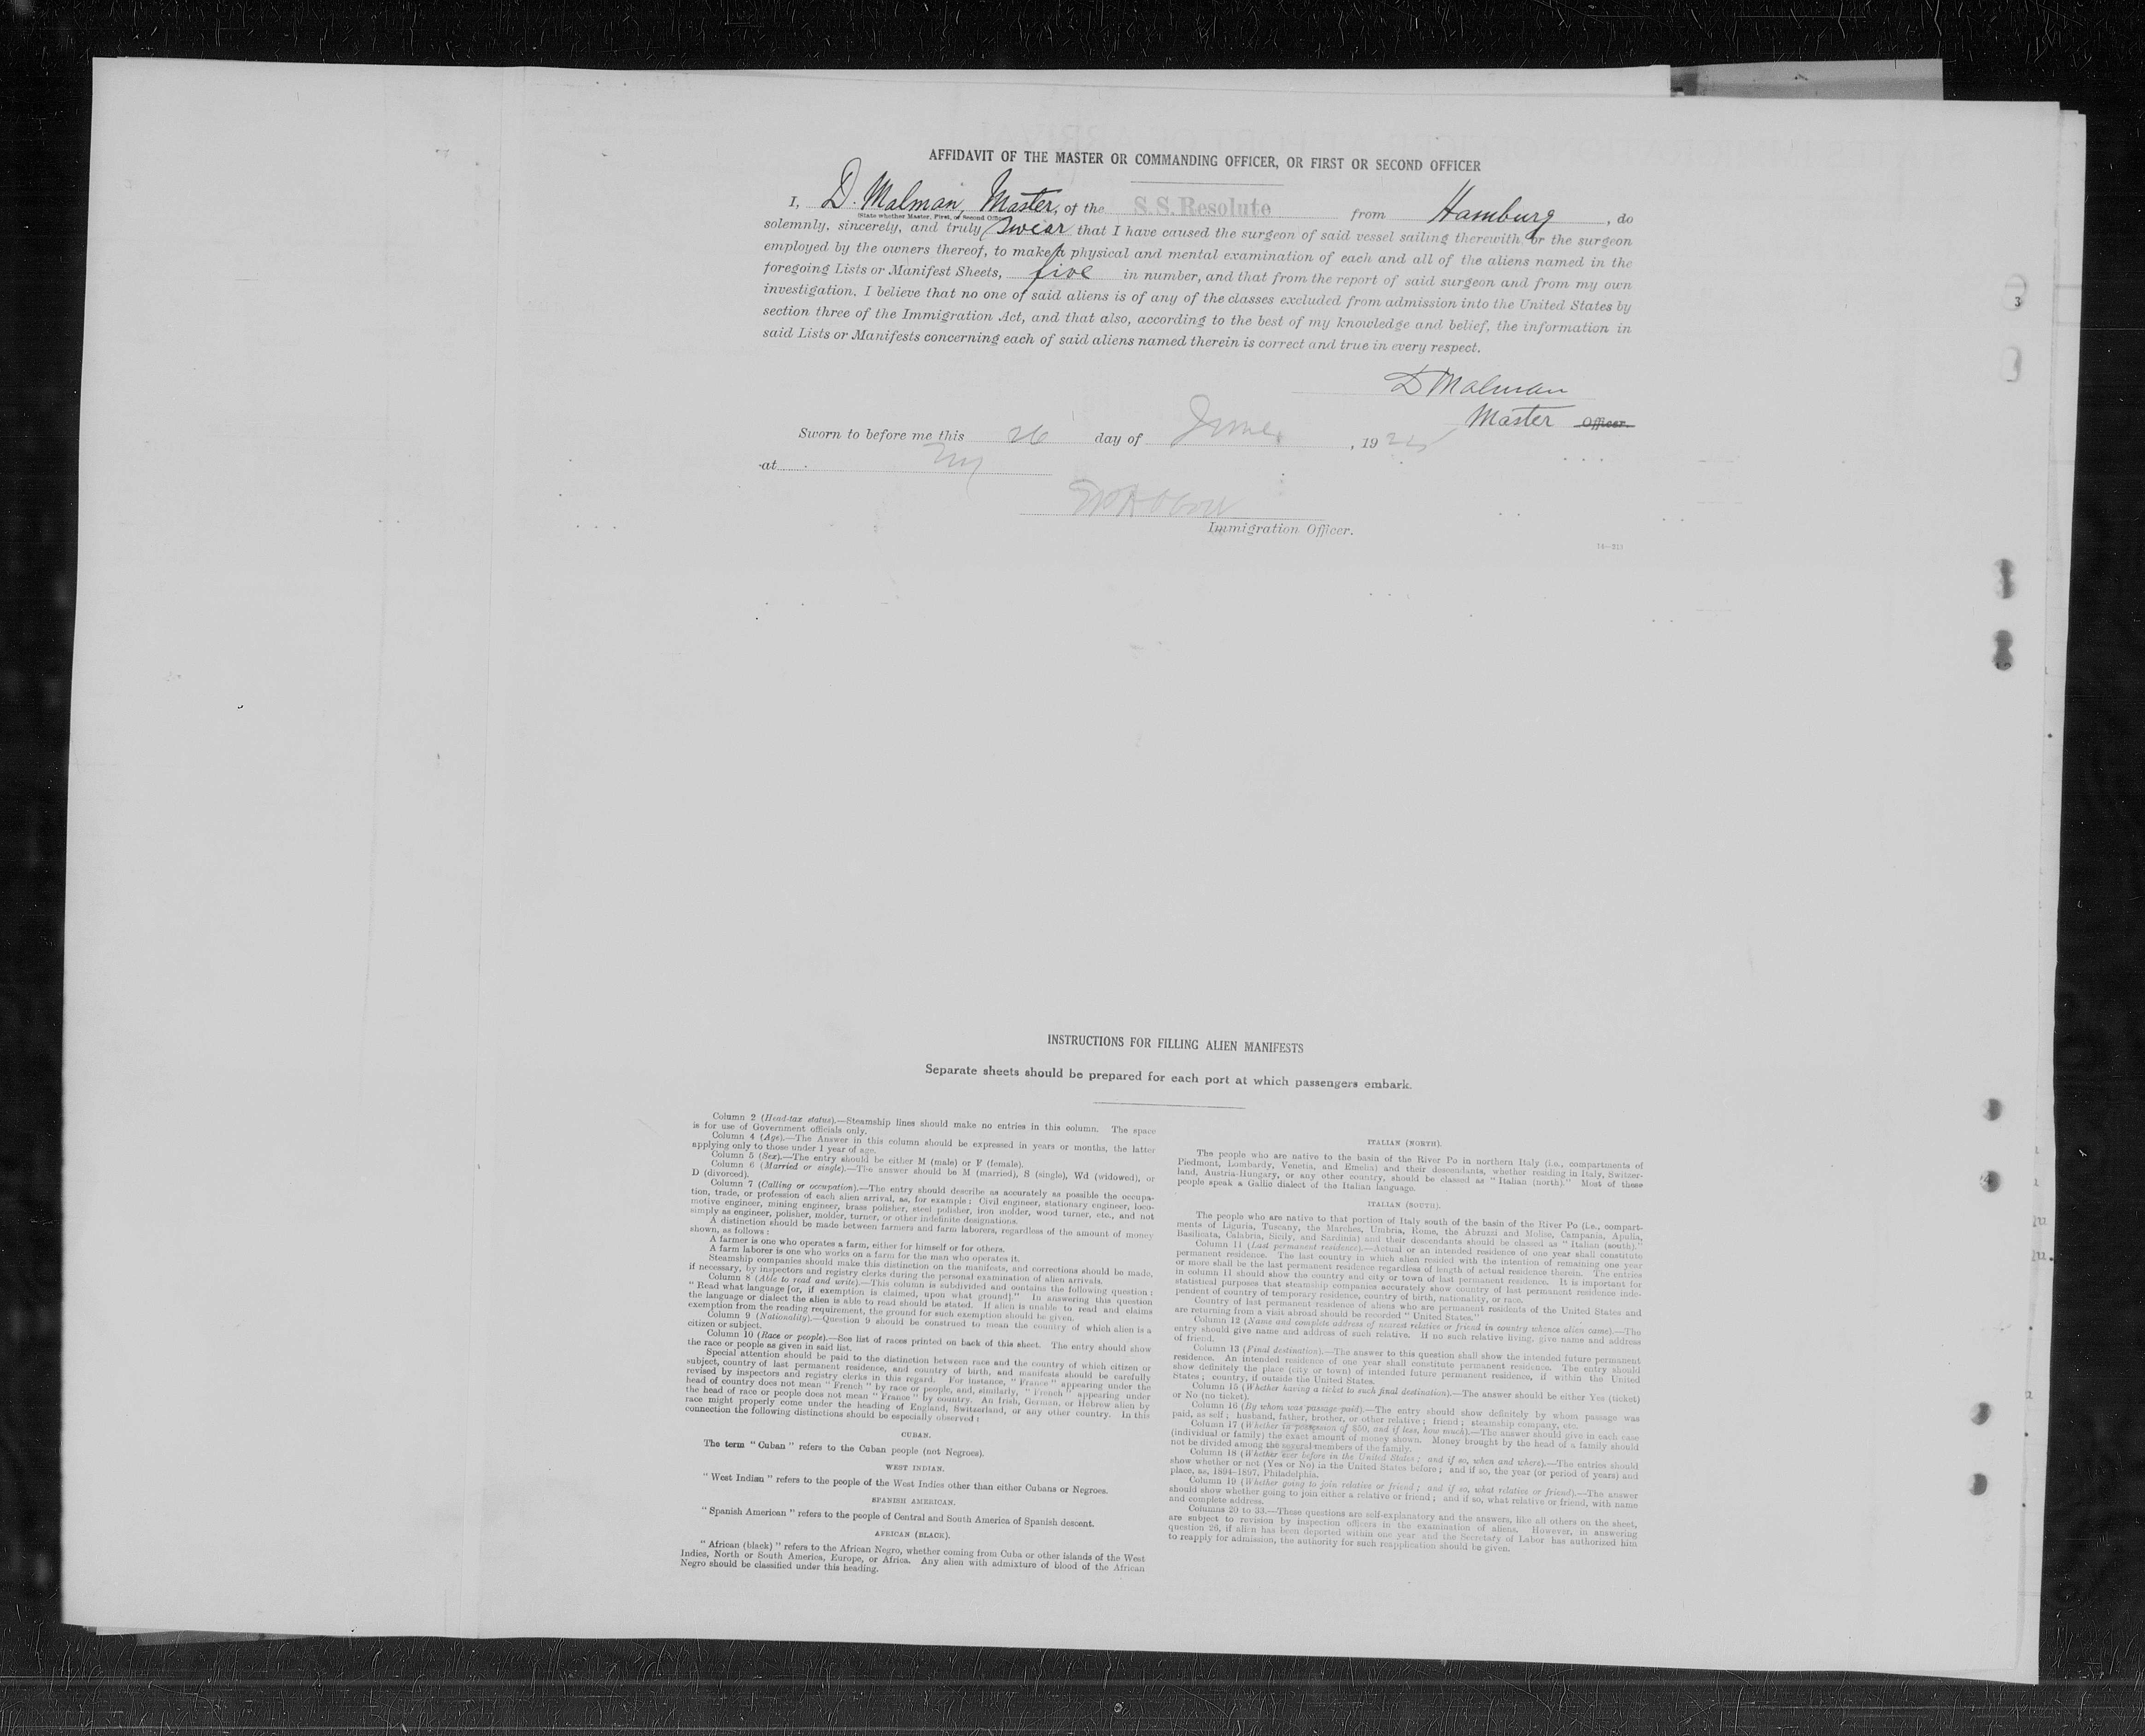 AFFIDAVIT OF THE MASTER OR COMMANDING OFFICER, OR FIRST OR SECOND OFFICER
I, D. Malman, Master, of the S.S. Resolute from Hamburg, do
(State whether Master, First, or Second Officer)
solemnly, sincerely, and truly swear that I have caused the surgeon of said vessel sailing therewith, or the surgeon
employed by the owners thereof, to make a physical and mental examination of each and all of the aliens named in the
foregoing Lists or Manifest Sheets, five in number, and that from the report of said surgeon and from my own
investigation, I believe that no one of said aliens is of any of the classes excluded from admission into the United States by
section three of the Immigration Act, and that also, according to the best of my knowledge and belief, the information in
said Lists or Manifests concerning each of said aliens named therein is correct and true in every respect.
D Malman
Master Officer.
Sworn to before me this 26 day of June, 19
at NY
Immigration Officer.
3
INSTRUCTIONS FOR FILLING ALIEN MANIFESTS
Separate sheets should be prepared for each port at which passengers embark.
Column 2 (Head-tax status).—Steamship lines should make no entries in this column. The space
is for use of Government officials only.
Column 4 (Age).—The Answer in this column should be expressed in years or months, the latter
applying only to those under 1 year of age.
Column 5 (Sex).—The entry should be either M (male) or F (female).
Column 6 (Married or single).—The answer should be M (married), S (single), Wd (widowed), or
D (divorced).
Column 7 (Calling or occupation).—The entry should describe as accurately as possible the occupa-
tion, trade, or profession of each alien arrival, as, for example: Civil engineer, stationary engineer, loco-
motive engineer, mining engineer, brass polisher, steel polisher, iron molder, wood turner, etc., and not
simply as engineer, polisher, molder, turner, or other indefinite designations.
A distinction should be made between farmers and farm laborers, regardless of the amount of money
shown, as follows:
A farmer is one who operates a farm, either for himself or for others.
A farm laborer is one who works on a farm for the man who operates it.
Steamship companies should make this distinction on the manifests, and corrections should be made,
if necessary, by inspectors and registry clerks during the personal examination of alien arrivals.
Column 8 (Able to read and write).—This column is subdivided and contains the following question:
"Read what language [or, if exemption is claimed, upon what ground]." In answering this question
the language or dialect the alien is able to read should be stated. If alien is unable to read and claims
exemption from the reading requirement, the ground for such exemption should be given.
Column 9 (Nationality).—Question 9 should be construed to mean the country of which alien is a
citizen or subject.
Column 10 (Race or people).—See list of races printed on back of this sheet. The entry should show
the race or people as given in said list.
Special attention should be paid to the distinction between race and the country of which citizen or
subject, country of last permanent residence, and country of birth, and manifests should be carefully
revised by inspectors and registry clerks in this regard. For instance, "France" appearing under the
head of country does not mean "French" by race or people, and, similarly, "French" appearing under
the head of race or people does not mean "France" by country. An Irish, German, or Hebrew alien by
race might properly come under the heading of England, Switzerland, or any other country. In this
connection the following distinctions should be especially observed:
CUBAN.
The term "Cuban" refers to the Cuban people (not Negroes).
WEST INDIAN.
"West Indian" refers to the people of the West Indies other than either Cubans or Negroes.
SPANISH AMERICAN.
"Spanish American" refers to the people of Central and South America of Spanish descent.
AFRICAN (BLACK).
"African (black)" refers to the African Negro, whether coming from Cuba or other islands of the West
Indies, North or South America, Europe, or Africa. Any alien with admixture of blood of the African
Negro should be classified under this heading.
ITALIAN (NORTH).
The people who are native to the basin of the River Po in northern Italy (i.e., compartments of
Piedmont, Lombardy, Venetia, and Emelia) and their descendants, whether residing in Italy, Switzer-
land, Austria-Hungary, or any other country, should be classed as "Italian (north)." Most of these
people speak a Gallic dialect of the Italian language.
ITALIAN (SOUTH).
The people who are native to that portion of Italy south of the basin of the River Po (i.e., compart-
ments of Liguria, Tuscany, the Marches, Umbria, Rome, the Abruzzi and Molise, Campania, Apulia,
Basilicata, Calabria, Sicily, and Sardinia) and their descendants should be classed as "Italian (south)."
Column 11 (Last permanent residence).—Actual or an intended residence of one year shall constitute
permanent residence. The last country in which alien resided with the intention of remaining one year
or more shall be the last permanent residence regardless of length of actual residence therein. The entries
in column 11 should show the country and city or town of last permanent residence. It is important for
statistical purposes that steamship companies accurately show country of last permanent residence inde-
pendent of country of temporary residence, country of birth, nationality, or race.
Country of last permanent residence of aliens who are permanent residents of the United States and
are returning from a visit abroad should be recorded "United States."
Column 12 (Name and complete address of nearest relative or friend in country whence alien came).—The
entry should give name and address of such relative. If no such relative living, give name and address
of friend.
Column 13 (Final destination).—The answer to this question shall show the intended future permanent
residence. An intended residence of one year shall constitute permanent residence. The entry should
show definitely the place (city or town) of intended future permanent residence, if within the United
States; country, if outside the United States.
Column 15 (Whether having a ticket to such final destination).—The answer should be either Yes (ticket)
or No (no ticket).
Column 16 (By whom was passage paid).—The entry should show definitely by whom passage was
paid, as self; husband, father, brother, or other relative; friend; steamship company, etc.
Column 17 (Whether in possession of $50, and if less, how much).—The answer should give in each case
(individual or family) the exact amount of money shown. Money brought by the head of a family should
not be divided among the several members of the family.
Column 18 (Whether ever before in the United States; and if so, when and where).—The entries should
show whether or not (Yes or No) in the United States before; and if so, the year (or period of years) and
place, as, 1894-1897, Philadelphia.
Column 19 (Whether going to join relative or friend; and if so, what relative or friend).—The answer
should show whether going to join either a relative or friend; and if so, what relative or friend, with name
and complete address.
Columns 20 to 33.—These questions are self-explanatory and the answers, like all others on the sheet,
are subject to revision by inspection officers in the examination of aliens. However, in answering
question 26, if alien has been deported within one year and the Secretary of Labor has authorized him
to reapply for admission, the authority for such reapplication should be given.